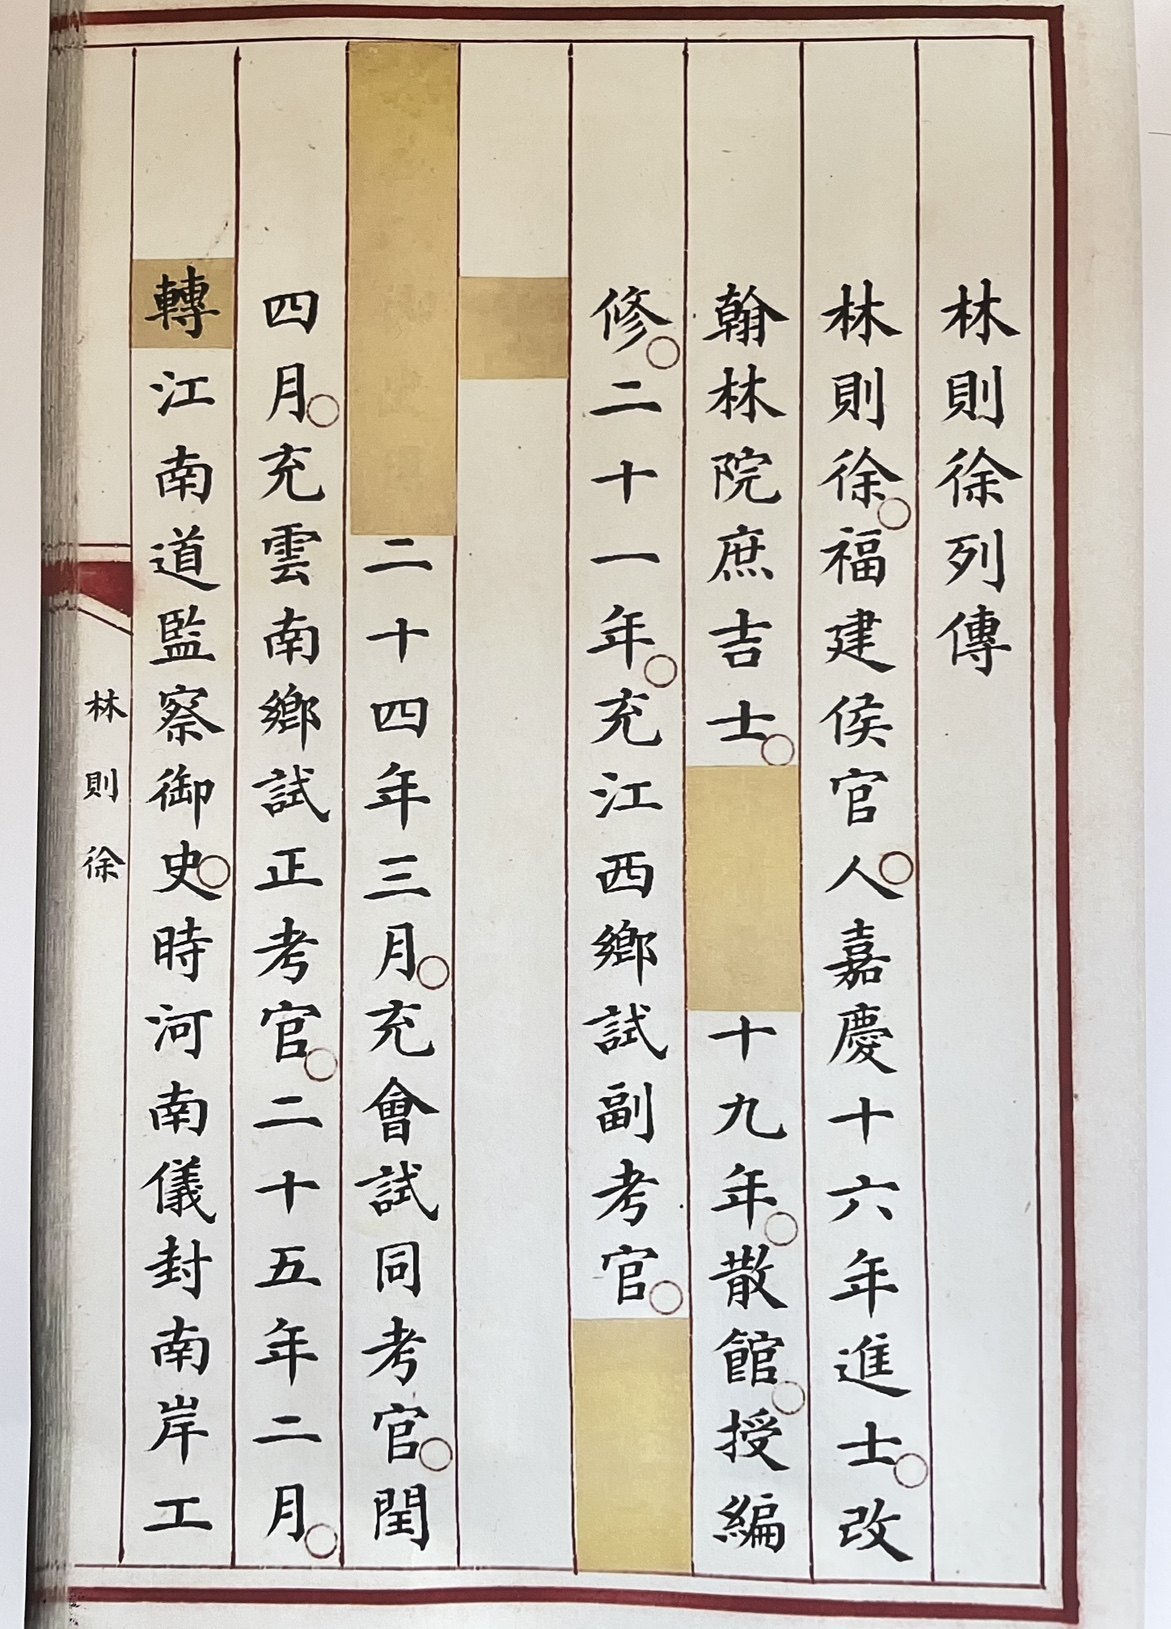 林則徐列傳
林則徐○福建侯官人○嘉慶十六年進士○改
翰林院庶吉士○十九年○散館○授編
修○二十一年○充江西鄉試副考官○
二十四年三月○充會試同考官○閏
四月○充雲南鄉試正考官○二十五年二月○
轉江南道監察御史○時河南儀封南岸工
林則徐